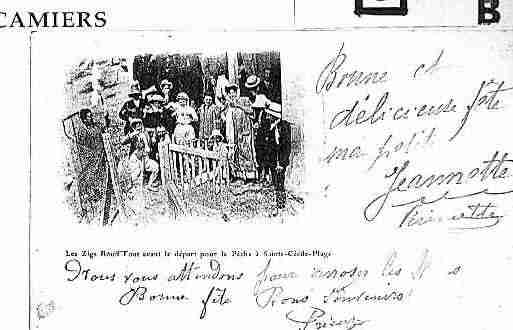 CAMIERS
B
Bonne et
délicieuse fête
ma petite
Jeannette
Les Zigs Rouff'Tout avant le départ pour la Pêche à Sainte-Cécile-Plage
Nous vous attendons pour arroser les
Bonne fête Bons souvenirs